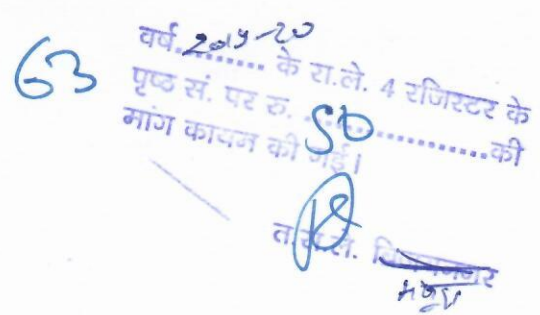 वर्ष 2019-20 के रा.ले. 4 रजिस्टर के
63 पृष्ठ सं. पर रु. 50 की
मांग कायम की गई।
त.रा.ले.